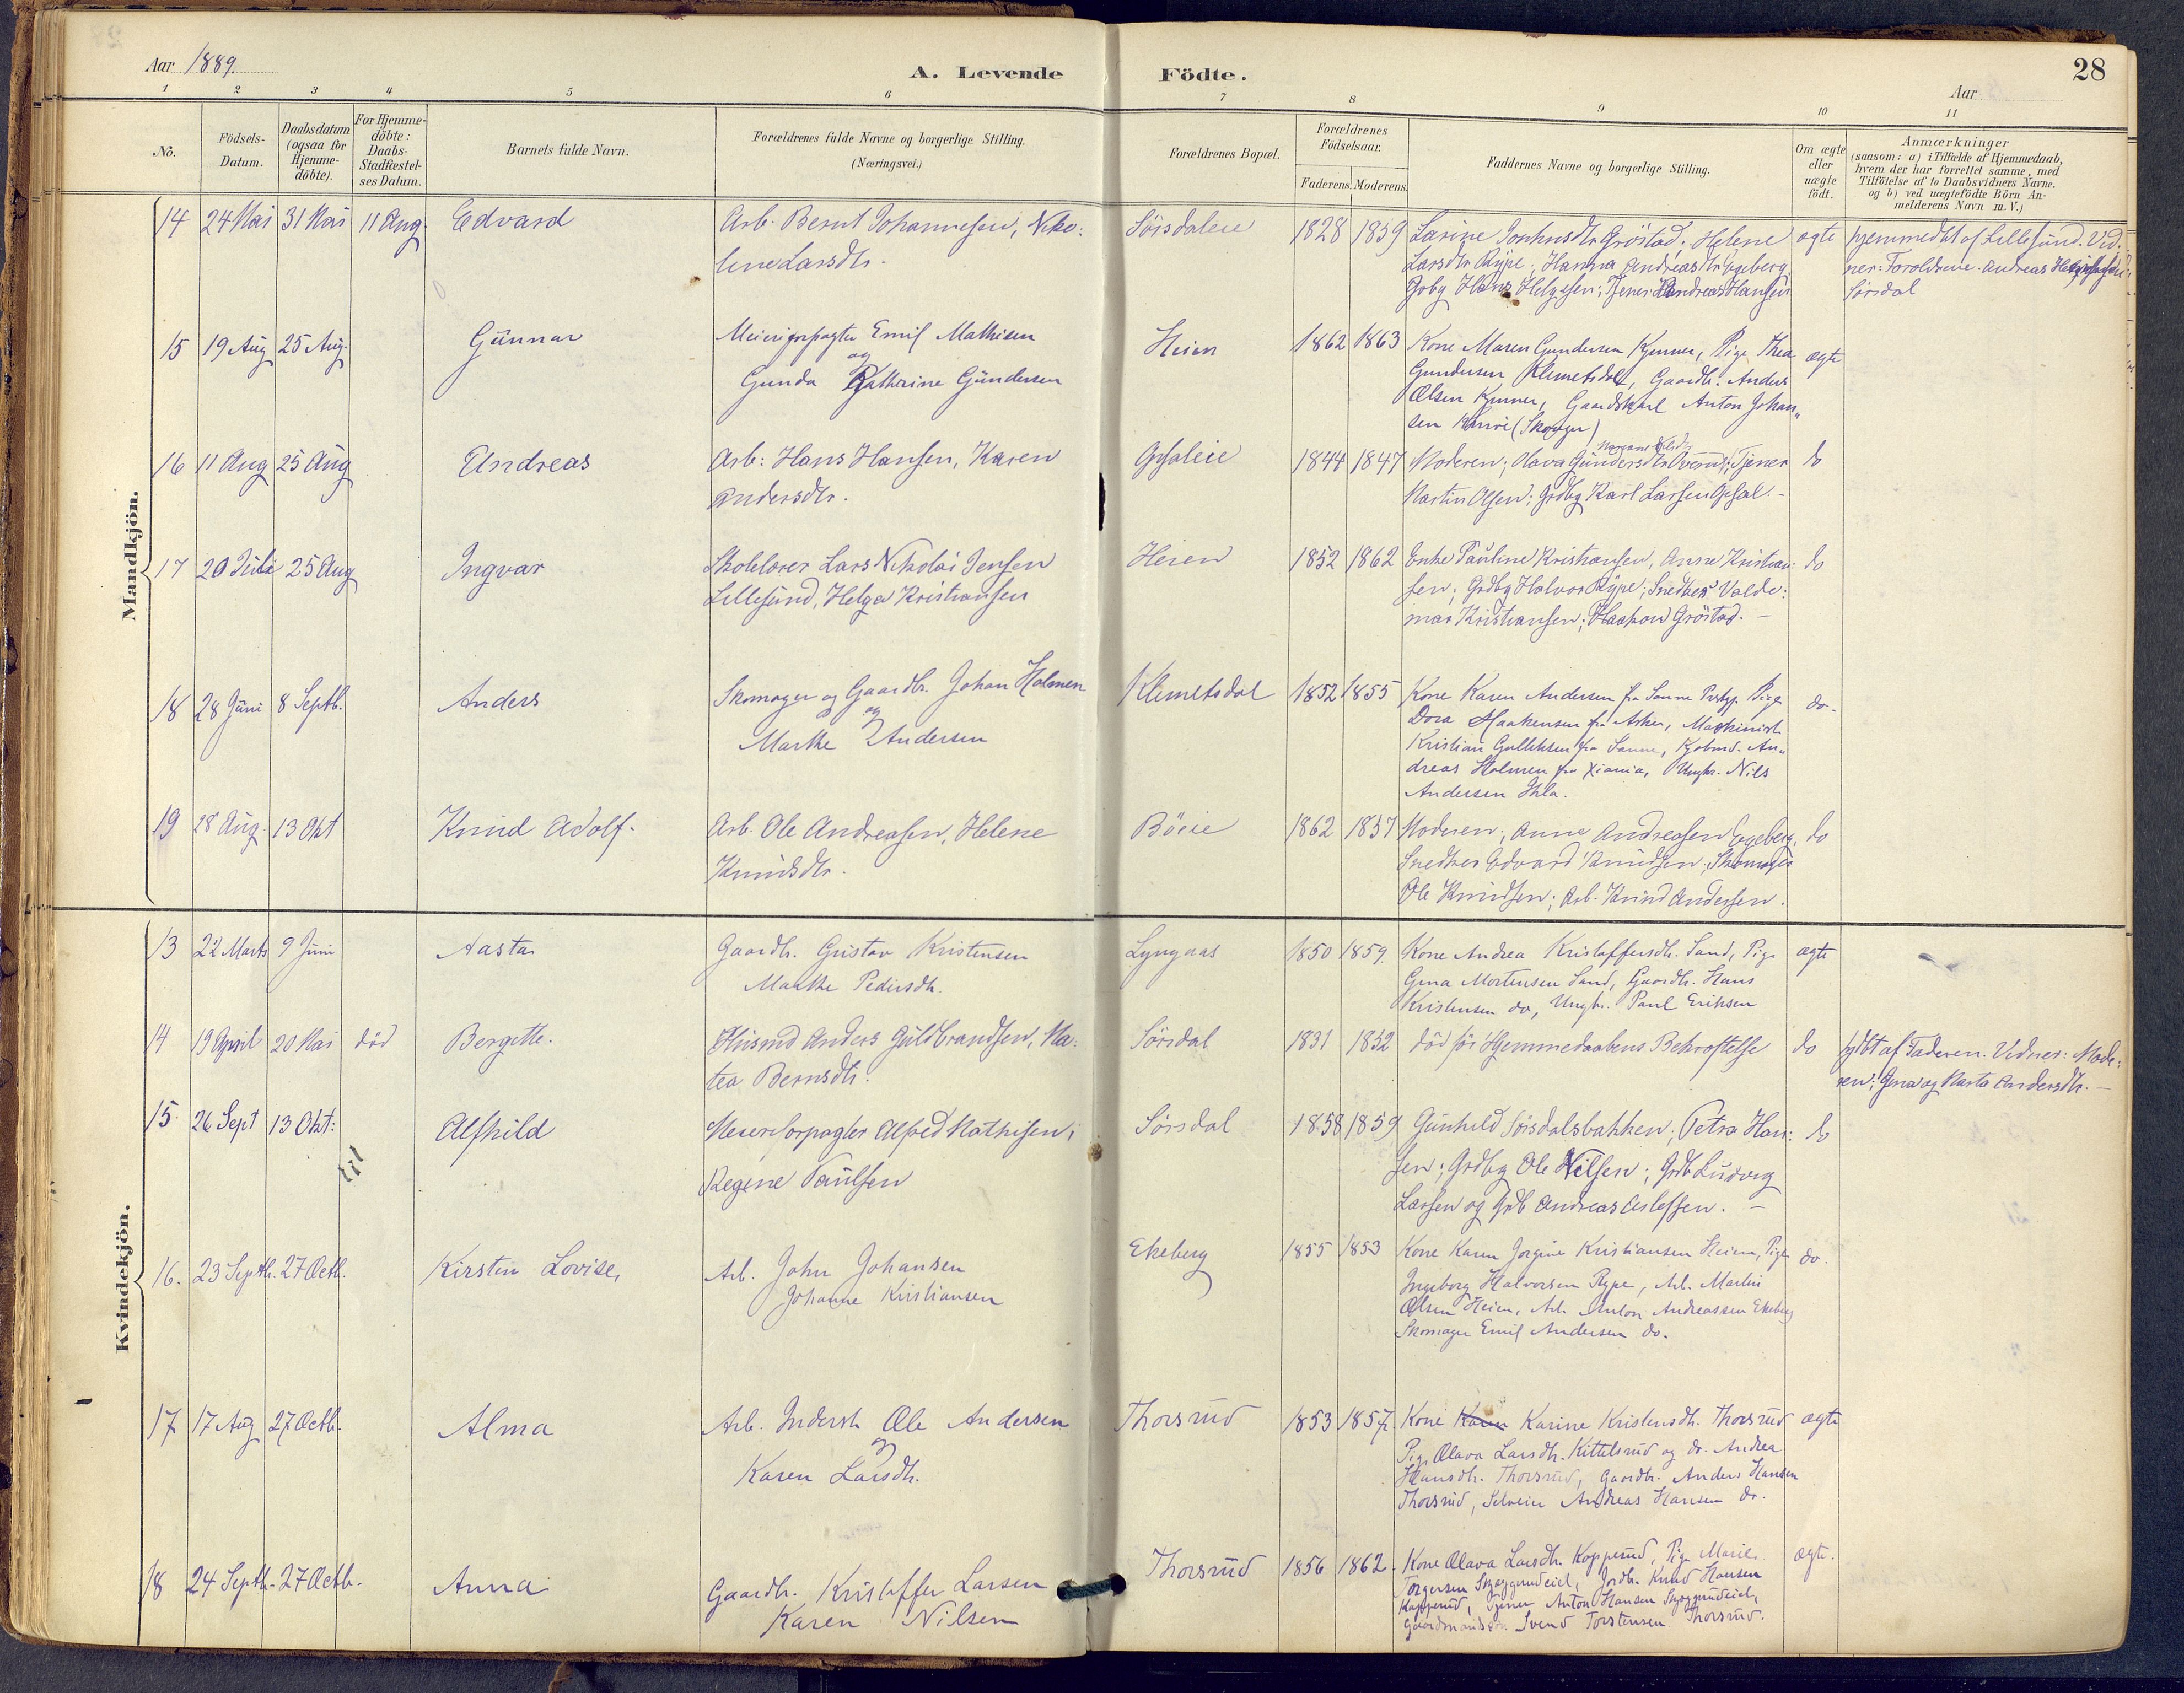 Aar 1889.
A. Levende Födte.
28
Aar
1 2 3 4 5 6 7 8 9 10 11
No.
Födsels-Datum.
Daabsdatum (ogsaa for Hjemme-döbte).
For Hjemme-döbte: Daabs-Stadfæstel-ses Datum.
Barnets fulde Navn.
Forældrenes fulde Navne og borgerlige Stilling.
(Næringsvei.)
Forældrenes Bopæl.
Forældrenes Födselsaar.
Faderens. Moderens.
Faddernes Navne og borgerlige Stilling.
Om ægte eller uægte födt.
Anmærkninger
(saasom: a) i Tilfælde af Hjemmedaab,
hvem der har forrettet samme, med
Tilföielse af to Daabsvidners Navne,
og b) ved uægtefödte Börn An-
melderens Navn m. V.)
Mandkjön.
14 24 Mai 31 Mai 11 Aug. Edvard Arb. Bernt Johannesen, Niko: Sörsdaleie 1828 1859 Larine Gröstad; Helene ægte hjemmedbt af Lillesund. Vid:
line Larsdtr. Larsdtr Rype; Hanna Andreasdtr Egeberg ner: Foreldrene. Andreas
Hans Helgesen; Tjener Andreas Hansen Sörsdal
15 19 Aug 25 Aug. Gunnar Meieriforpagter Emil Mathisen Heien 1862 1863 Kone Maren Gundersen Kjenner, Pige Thea ægte
og Gundersen Klemetsdal, Gaardbr. Anders
Gunda Kathrine Gundersen Olsen Kjenner, Gaardskarl Anton Johan„
sen (Skoger)
16 11 Aug 25 Aug Andreas Arb: Hans Hansen, Karen 1844 1847 Moderen; Olava Gundersdtr Tjener do
Andersdtr. Martin Olsen; Grdbg Karl Larsen Opsal. -
17 20 Juli 25 Aug Ingvar Skolelærer Lars Nikolai Jensen Heien 1852 1862 Enke Pauline Kristiansen, Anna Kristian: do
Lillesund, Helga Kristiansen sen; Grdbg Halvor Rype; Snedker Valde:
mar Kristiansen; Haakon Gröstad. -
18 28 Juni 8 Septb. Anders Skomager og Gaardbr. Johan Holmen Klemetsdal 1852 1855 Kone Karen Andersen fra Sanne Pige do-
og Dora Haakensen fra Asker, Maskinist
Marthe Andersen Kristian Gulliksen fra Sanne, Kjøbmd. An„
dreas Holmen fra Xiania, Ungkr. Nils
Andersen
19 28 Aug. 13 Okt Knud Adolf. Arb. Ole Andreasen, Helene Böeie 1862 1857 Moderen; Anne Andreasen Egeberg, do
Knudsdtr. Snedker Edvard Knudsen; Skomager
Ole Knudsen; Arb. Knud Andersen.
Kvindekjön.
13 22 Marts 9 Juni Aasta Gaardbr. Gustav Kristensen Lyngaas 1850 1859. Kone Andrea Kristoffersdtr. Sand, Pige ægte
Marthe Pedersdtr. Gina Mortensen Sand, Gaardbr. Hans
Kristensen do, Ungkr. Paul Eriksen
14 19 April 20 Mai död Bergitte. Husmd Anders Guldbrandsen, Ma: Sörsdal 1831 1832 död før Hjemmedaabens Bekræftelse do hjdbt af Faderen. Vidner: Mode:
tea Berntsdtr. ren; Gina og Marta Andersdtr. -
15 26 Sept 13 Okt: Alfhild Meieriforpagter Alfred Mathisen; Sörsdal 1858 1859 Gunhild Sörsdalsbakken; Petra Han: do
til
Regine Paulsen sen; Grdbg Ole Nilsen; Grdb Ludvig
Larsen og Grdb Andreas Aslefsen. -
16. 23 Septb. 27 Octb. Kirstin Lovise, Arb. John Johansen Ekeberg 1855 1853 Kone Karen Jorgine Kristiansen Heien, Pige do.
Johanne Kristiansen Ingeborg Halvorsen Rype, Arb. Martin
Olsen Heien, Arb. Anton Andreassen Ekeberg
Skomager Emil Andersen do.
17 17 Aug 27 Octb. Alma Arb. Inderst Ole Andersen Thorsrud 1853 1857 Kone Karen Karine Kristensdtr. Thorsrud ægte
og Pige Olava Larsdtr. Kittelsrud og do. Andrea
Karen Larsdtr. Hansdtr. Thorsrud, Gaardbr. Anders Hansen
Thorsrud, Selveier Andreas Hansen do.
18 24 Septb. 27 Octb. Anna Gaardbr. Kristoffer Larsen Thorsrud 1856 1862. Kone Olava Larsdtr. Kopperud, Pige Marie ægte.
Karen Nilsen Torgersen Gordbr. Knud Hansen
Kopperud, Tjener Anton Hansen
Svend Torstensen Thorsrud.